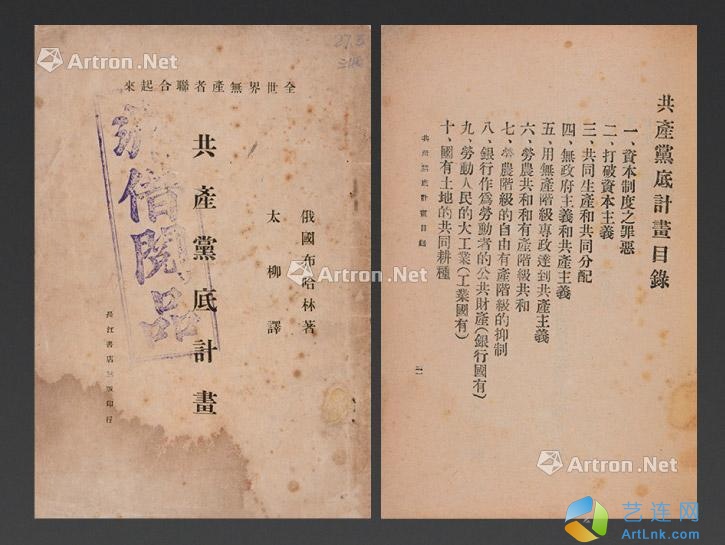 Artron.Net
全世界無產者聯合起來
俄國布哈林著
太柳譯
共產黨底計畫
長江書店印行
借閱品
Artron.Net
共產黨底計畫目錄
一、資本制度之罪惡
二、打破資本主義
三、共同生產和共同分配
四、無政府主義和共產主義
五、用無產階級專政達到共產主義
六、勞農共和和有產階級共和
七、勞農階級的自由有產階級的抑制
八、銀行作為勞動者的公共財產(銀行國有)
九、勞動人民的大工業(工業國有)
十、國有土地的共同耕種
共產黨底計畫目錄
Artron.Net
Artron.Net
Artron.Net
艺连网
ArtLnk.com